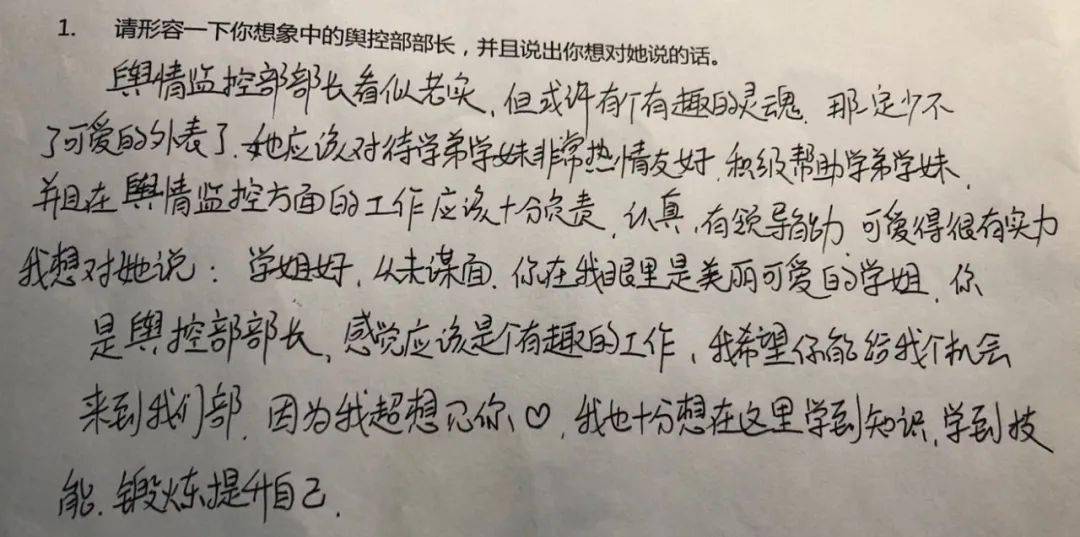 1. 请形容一下你想象中的舆控部部长，并且说出你想对她说的话。
舆情监控部部长看似老实，但或许有个有趣的灵魂.那一定少不
了可爱的外表了.她应该对待学弟学妹非常热情友好.积极帮助学弟学妹，
并且在舆情监控方面的工作应该十分负责，认真，有领导能力 可爱得很有实力
我想对她说：学姐好，从未谋面.你在我眼里是美丽可爱的学姐，你
是舆控部部长，感觉应该是个有趣的工作，我希望你能给我个机会
来到我们部.因为我超想见你、♡，我也十分想在这里学到知识，学到技
能.锻炼提升自己.